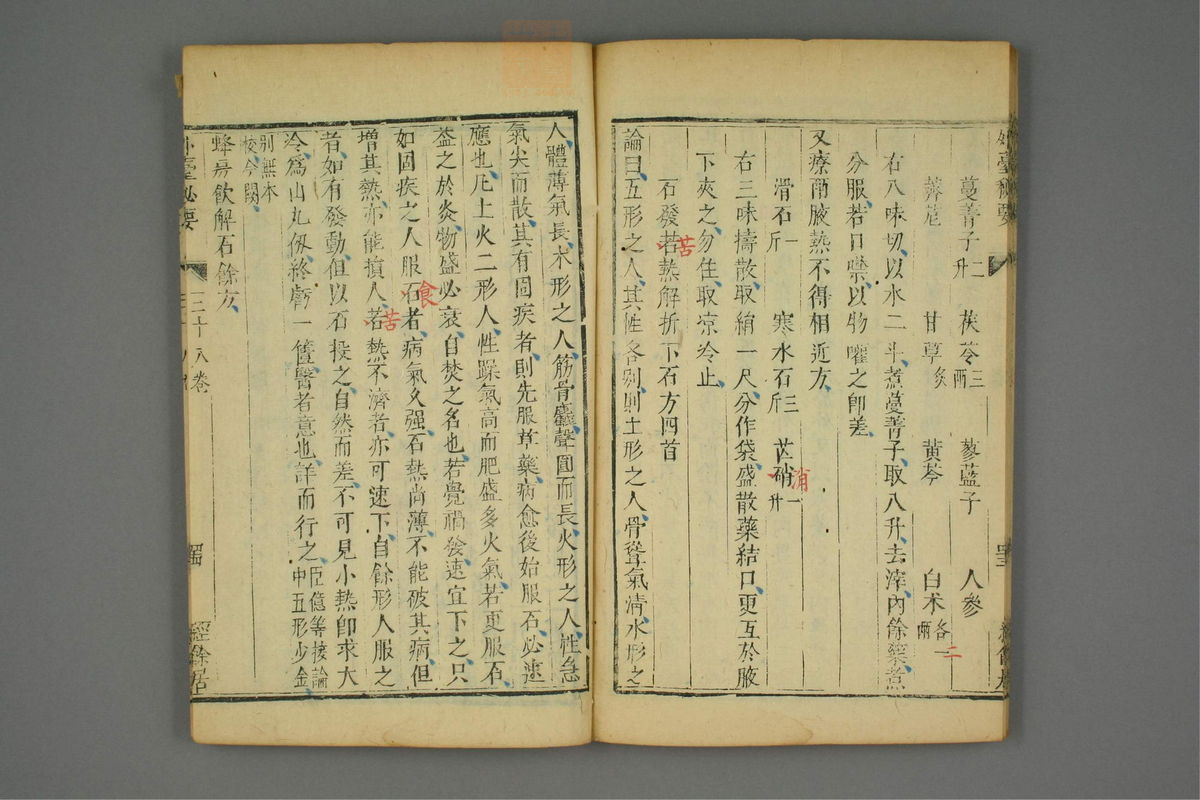 蔓菁子二升 茯苓三兩 蓼藍子 人參
薺苨 甘草炙 黃芩 白术各一兩
二
右八味切以水二斗煮蔓菁子取八升去滓內餘藥煮
分服若口噤以物嚾之即差
又療兩腋熱不得相近方
滑石一斤 寒水石三斤 芒硝一升
浦
右三味擣散取絹一尺分作袋盛散藥結口更互於腋
下夾之勿住取凉冷止
石發若熱解折下石方四首
苦
論曰五形之人其性各別則土形之人骨聳氣清水形之
人體薄氣長木形之人筋骨麤聲圓而長火形之人性急
氣尖而散其有固疾者則先服草藥病愈後始服石必速
應也凡土火二形人性躁氣高而肥盛多火氣若更服石
益之於炎物盛必衰自焚之名也若覺禍發速宜下之只
如固疾之人服石者病氣久强石熱尚薄不能破其病但
食
增其熱亦能損人若熱不濟者亦可速下自餘形人服之
苦
者如有發動但以石投之自然而差不可見小熱即求大
冷為山丸仭終虧一簣醫者意也詳而行之臣億等按論中五形少金
別無本校今闕
蜂房飲解石餘方
三十八卷
經餘居